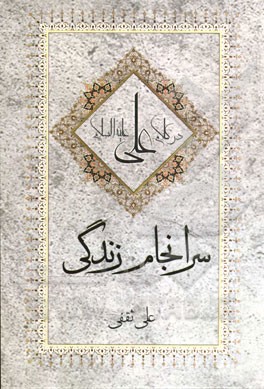 در کلام علی علیه السلام
سرانجام زندگی
علی ثقفی